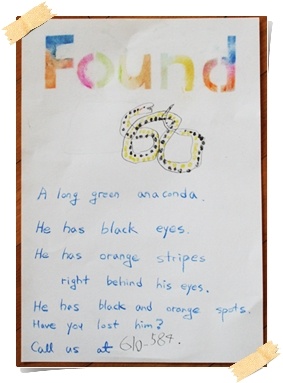 Found
A long green anaconda.
He has black eyes.
He has orange stripes
right behind his eyes.
He has black and orange spots.
Have you lost him?
Call us at 610-584.